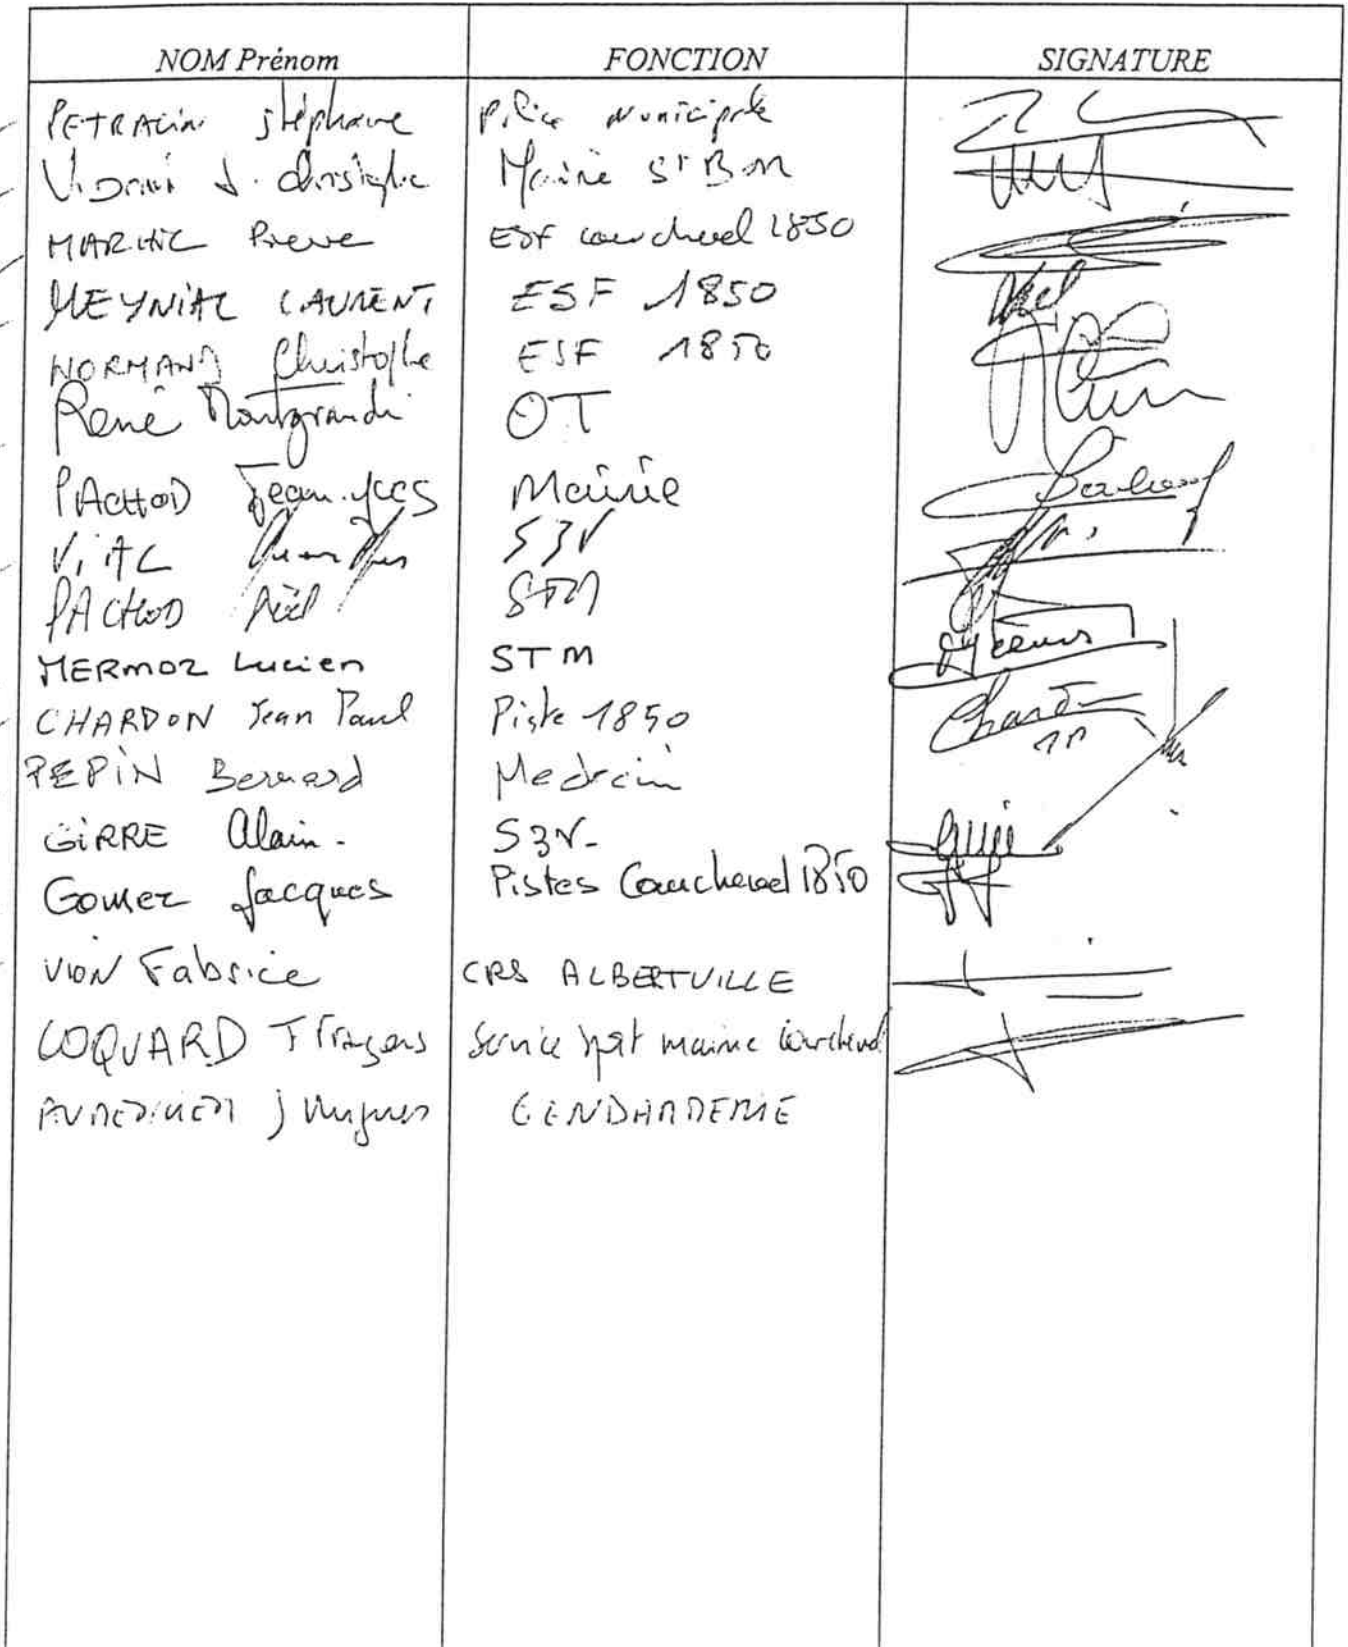 NOM Prénom FONCTION SIGNATURE
Stéphane Police Municipale
J. Christophe Mairie St Bon
Pierre ESF Courchevel 1850
MEYNIAL LAURENT ESF 1850
NORMAND Christophe ESF 1850
René Montgrandi OT
PACHOD Jean-Yves Mairie
VIAL S3V
PACHOD STM
MERMOZ Lucien STM
CHARDON Jean Paul Piste 1850
PEPIN Bernard Medecin
GIRRE Alain - S3V -
Gomez Jacques Pistes Courchevel 1850
VION Fabrice CRS ALBERTVILLE
COQUARD Service mairie Courchevel
GENDARMERIE